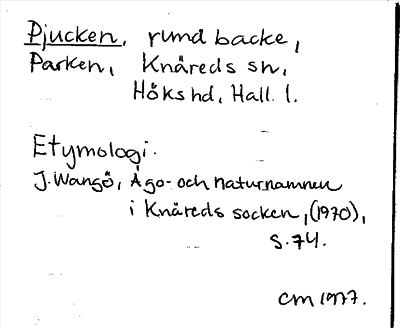 Pjucken, rund backe,
Parken, Knäreds sn,
Höks hd, Hall. l.
Etymologi.
J. Wangö, Ägo- och naturnamnen
i Knäreds socken, (1970),
s. 74.
CM 1977.